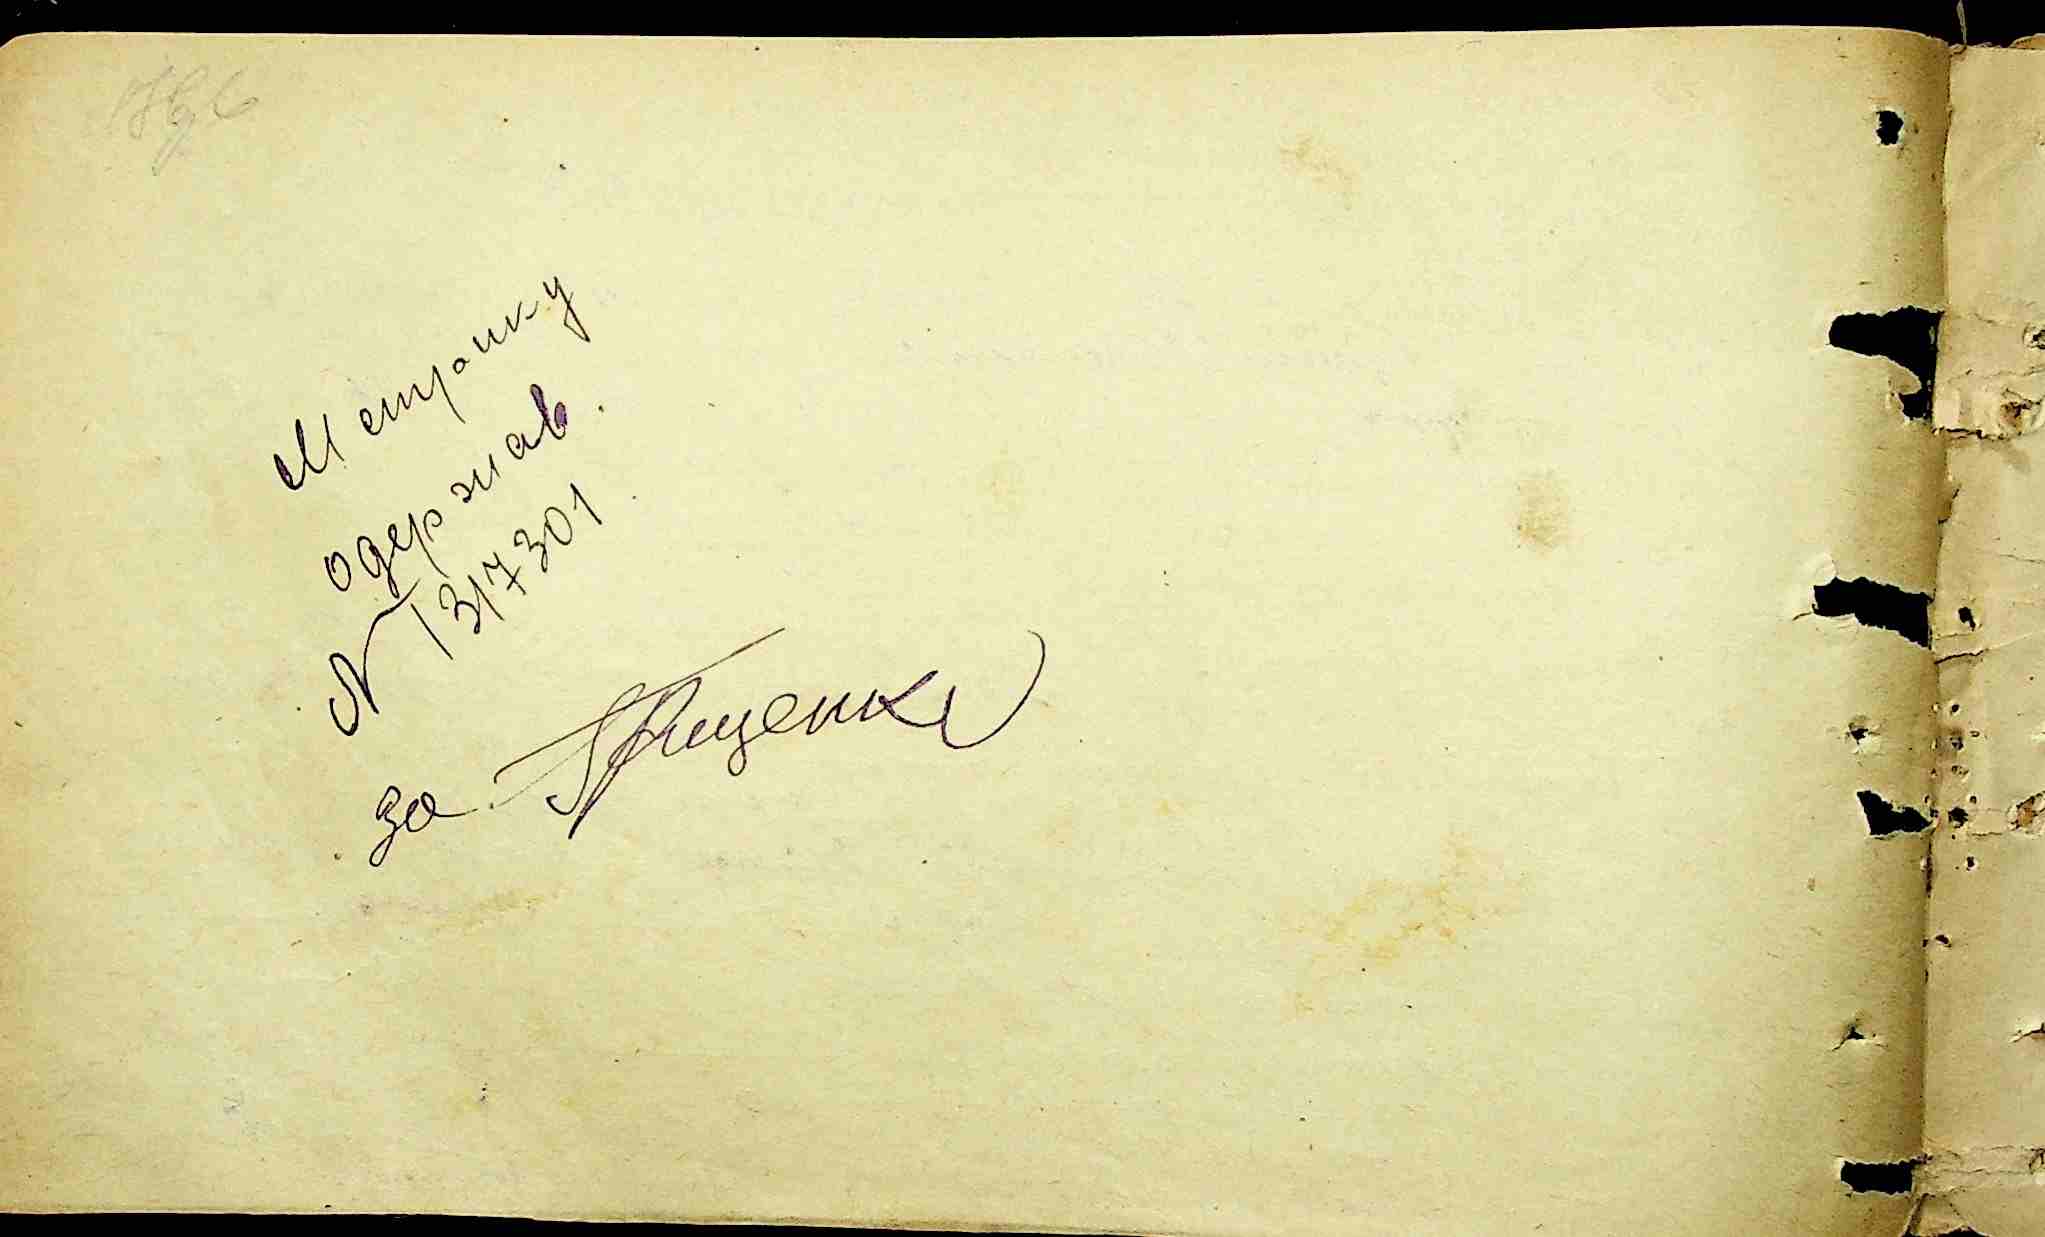 Метрику
одержав
№ 1317301
за Грищенко